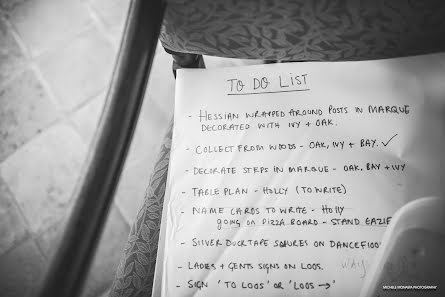 TO DO LIST
- HESSIAN WRAPPED AROUND POSTS IN MARQUE
DECORATED WITH IVY + OAK.
- COLLECT FROM WOODS - OAK, IVY + BAY. ✓
- DECORATE STEPS IN MARQUE - OAK, BAY + IVY
- TABLE PLAN - HOLLY (TO WRITE)
- NAME CARDS TO WRITE - HOLLY
GOING ON PIZZA BOARD - STAND EAZIE
- SILVER DUCKTAPE SQURES ON DANCEFLOO
- LADIES + GENTS SIGNS ON LOOS.
- SIGN 'TO LOOS' OR 'LOOS →'
MICHELE MONASTA PHOTOGRAPHY